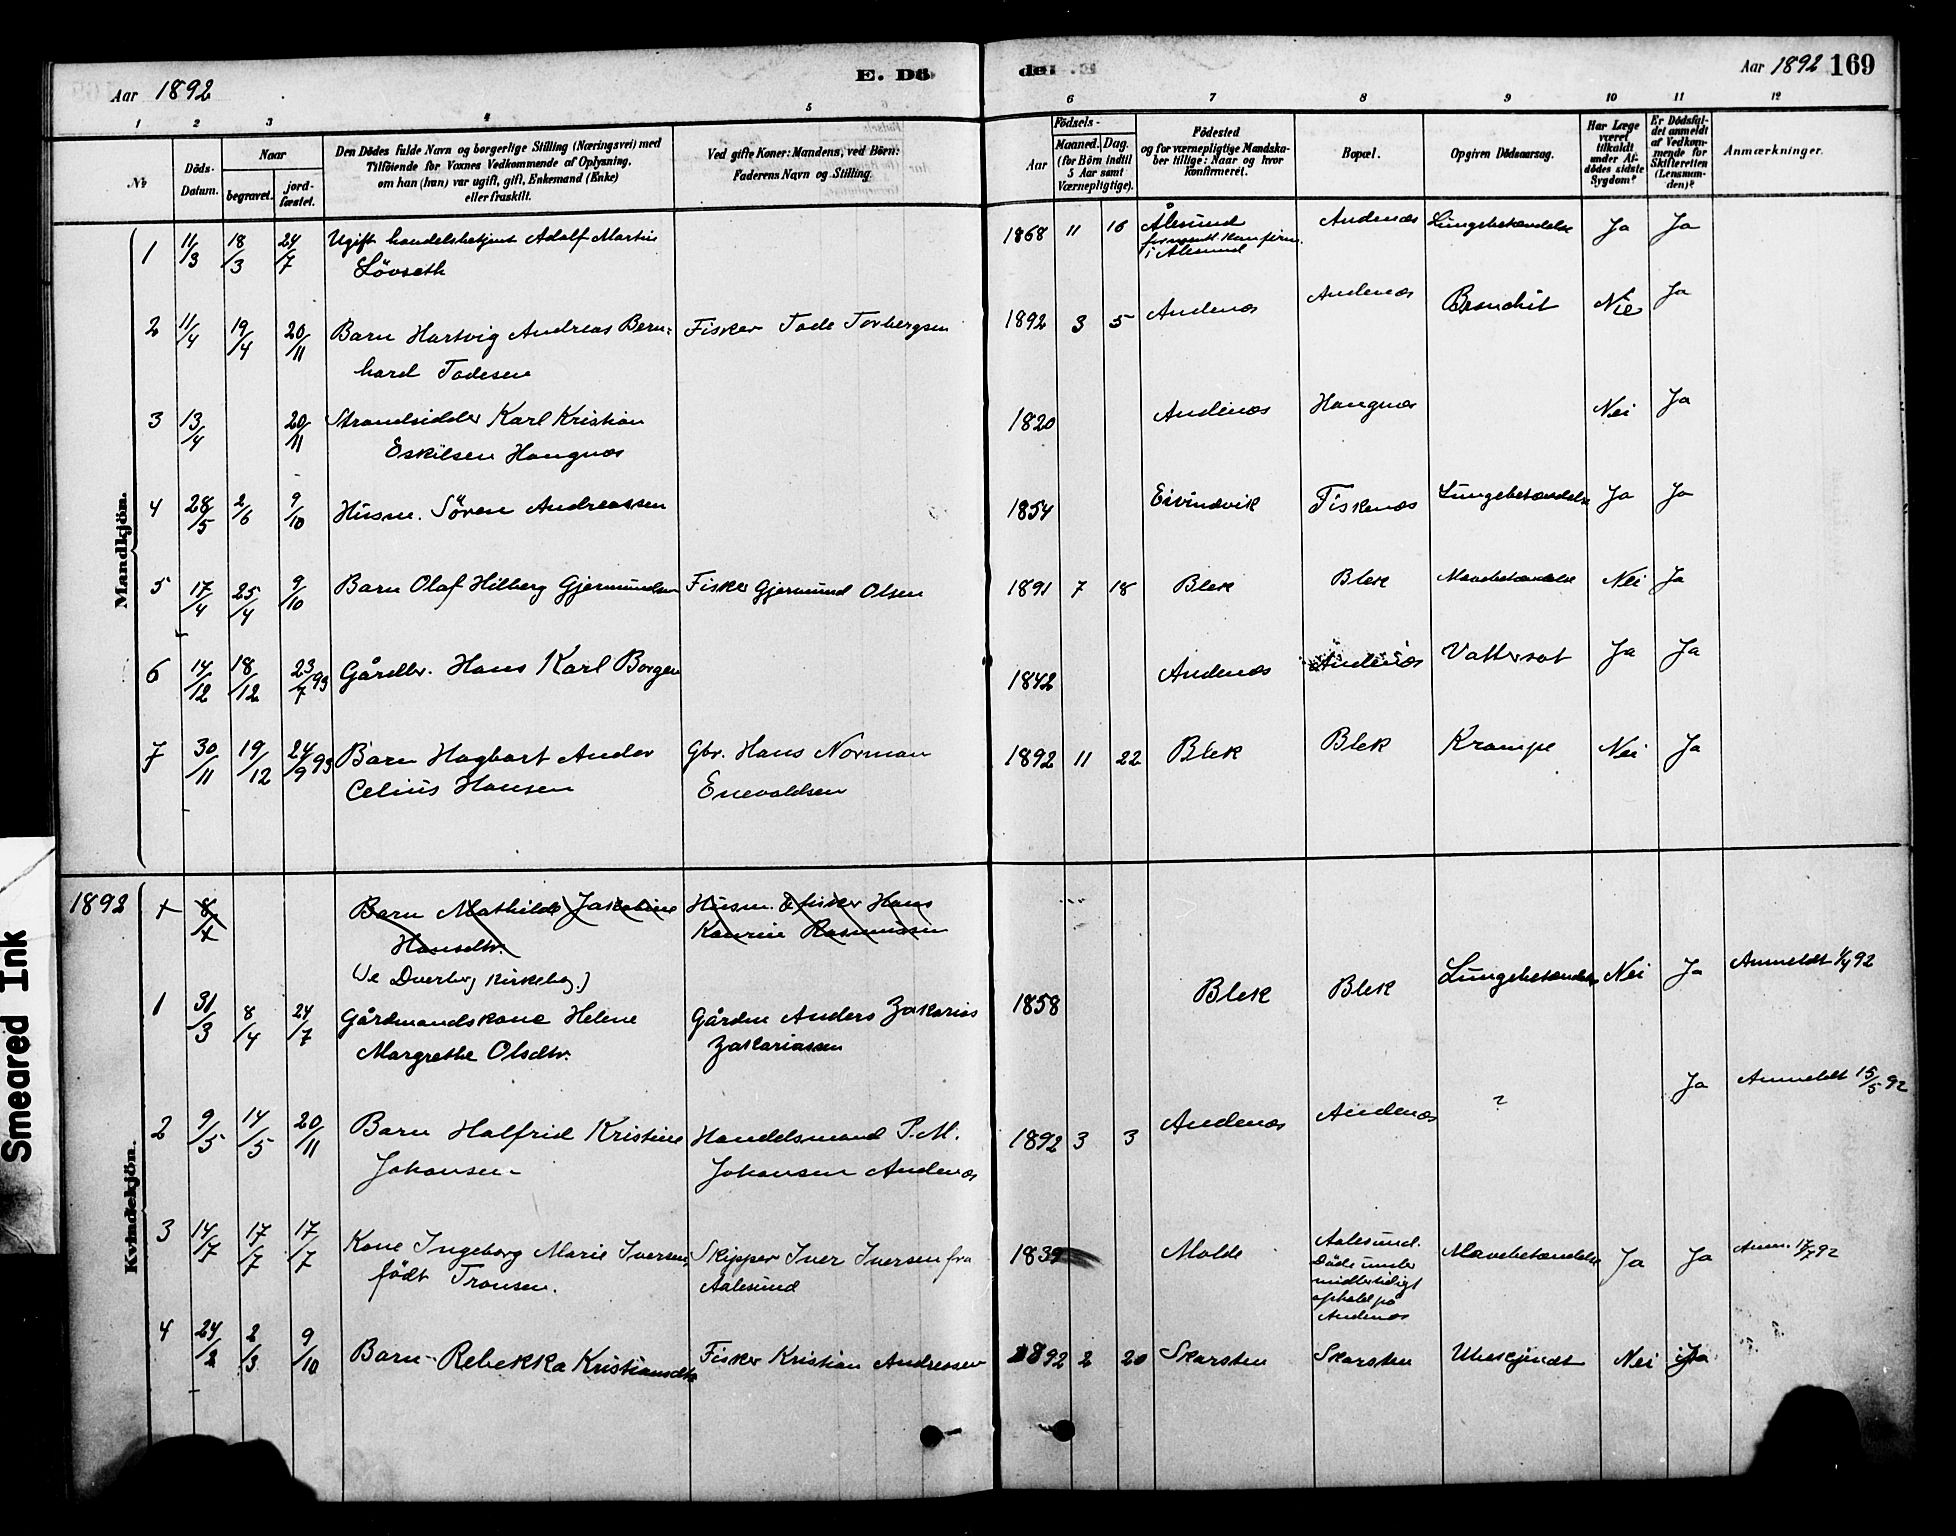 Aar 1892
E. Dö
de.
Aar 1892 169
1 2 3 4 5 6 7 8 9 10 11 12
No
Döds-
Datum.
Naar
begravet.
jord-
fæstet.
Den Dödes fulde Navn og borgerlige Stilling (Næringsvei) med
Tilföiende for Voxnes Vedkommende af Oplysning,
om han (hun) var ugift, gift, Enkemand (Enke)
eller fraskilt.
Ved gifte Koner: Mandens, ved Börn:
Faderens Navn og Stilling.
Födsels-
Aar
Maaned. Dag.
(for Börn indtil
5 Aar samt
Værnepligtige).
Födested
og for værnepligtige Mandska-
ber tillige: Naar og hvor
konfirmeret.
Bopæl.
Opgiven Dödsaarsag.
Har Læge
været
tilkaldt
under Af-
dödes sidste
Sygdom?
Er Dödsfal-
det anmeldt
af Vedkom-
mende for
Skifteretten
(Lensman-
den)?
Anmærkninger.
Mandkjön.
1 11/3 18/3 24/7 Ugift handelsbetjent Adolf Martin 1868 11 16 Ålesund Andenæs Lungebetændelse Ja Ja
Lövseth
i Ålesund
2 11/4 19/4 20/11 Barn Hartvig Andreas Bern- Fisker Tode Torbergsen 1892 3 5 Andenæs Andenæs Bronchit Nei Ja
hard Todesen
3 13/4 20/11 Strandsidder Karl Kristian 1820 Andenæs Haugnæs Nei Ja
Eskilsen Haugnæs
4 28/5 2/6 9/10 Husm. Sören Andreassen 1854 Eivindvik Fiskenæs Lungebetændelse Ja Ja
5 17/4 25/4 9/10 Barn Olaf Hilberg Gjermundsen Fisker Gjermund Olsen 1891 7 18 Blek Blek Mavebetændelse Nei Ja
6 14/12 18/12 23/7 93 Gårdbr. Hans Karl Borgen 1842 Andenæs Andenæs Vattersot Ja Ja
7 30/11 19/12 24/9 93 Barn Hagbart Ander Gbr. Hans Norman 1892 11 22 Blek Blek Krampe Nei Ja
Celius Hansen Enevaldsen
Kvindekjön.
1892 + 8/4 Barn Mathilde Jakobine Husm. & fisker Hans
Hansdtr. Kaurin Rasmussen
(Se Dverberg Kirkebog.)
1 31/3 8/4 24/7 Gårdmandskone Helene Gårdm Anders Zakarias 1858 Blek Blek Lungebetændelse Nei Ja Anmeldt 1/4 92
Margrethe Olsdtr. Zakariassen
2 9/5 14/5 20/11 Barn Halfrid Kristine Handelsmand P. M. 1892 3 3 Andenæs Andenæs ? Ja Anmeldt 15/5 92
Johansen- Johansen Andenæs
3 14/7 17/7 17/7 Kone Ingeborg Marie Iversen, Skipper Iver Iversen fra 1839 Molde Aalesund. Mavebetændelse Ja Ja Anm. 17/7 92
født Tronsen. Aalesund
Døde under
midlertidigt
ophold på
Andenæs
4 24/2 2/3 9/10 Barn- Rebekka Kristiansdtr Fisker Kristian Andressen 1892 2 20 Skarsten Skarsten Ubekjendt Nei Ja
Smeared Ink